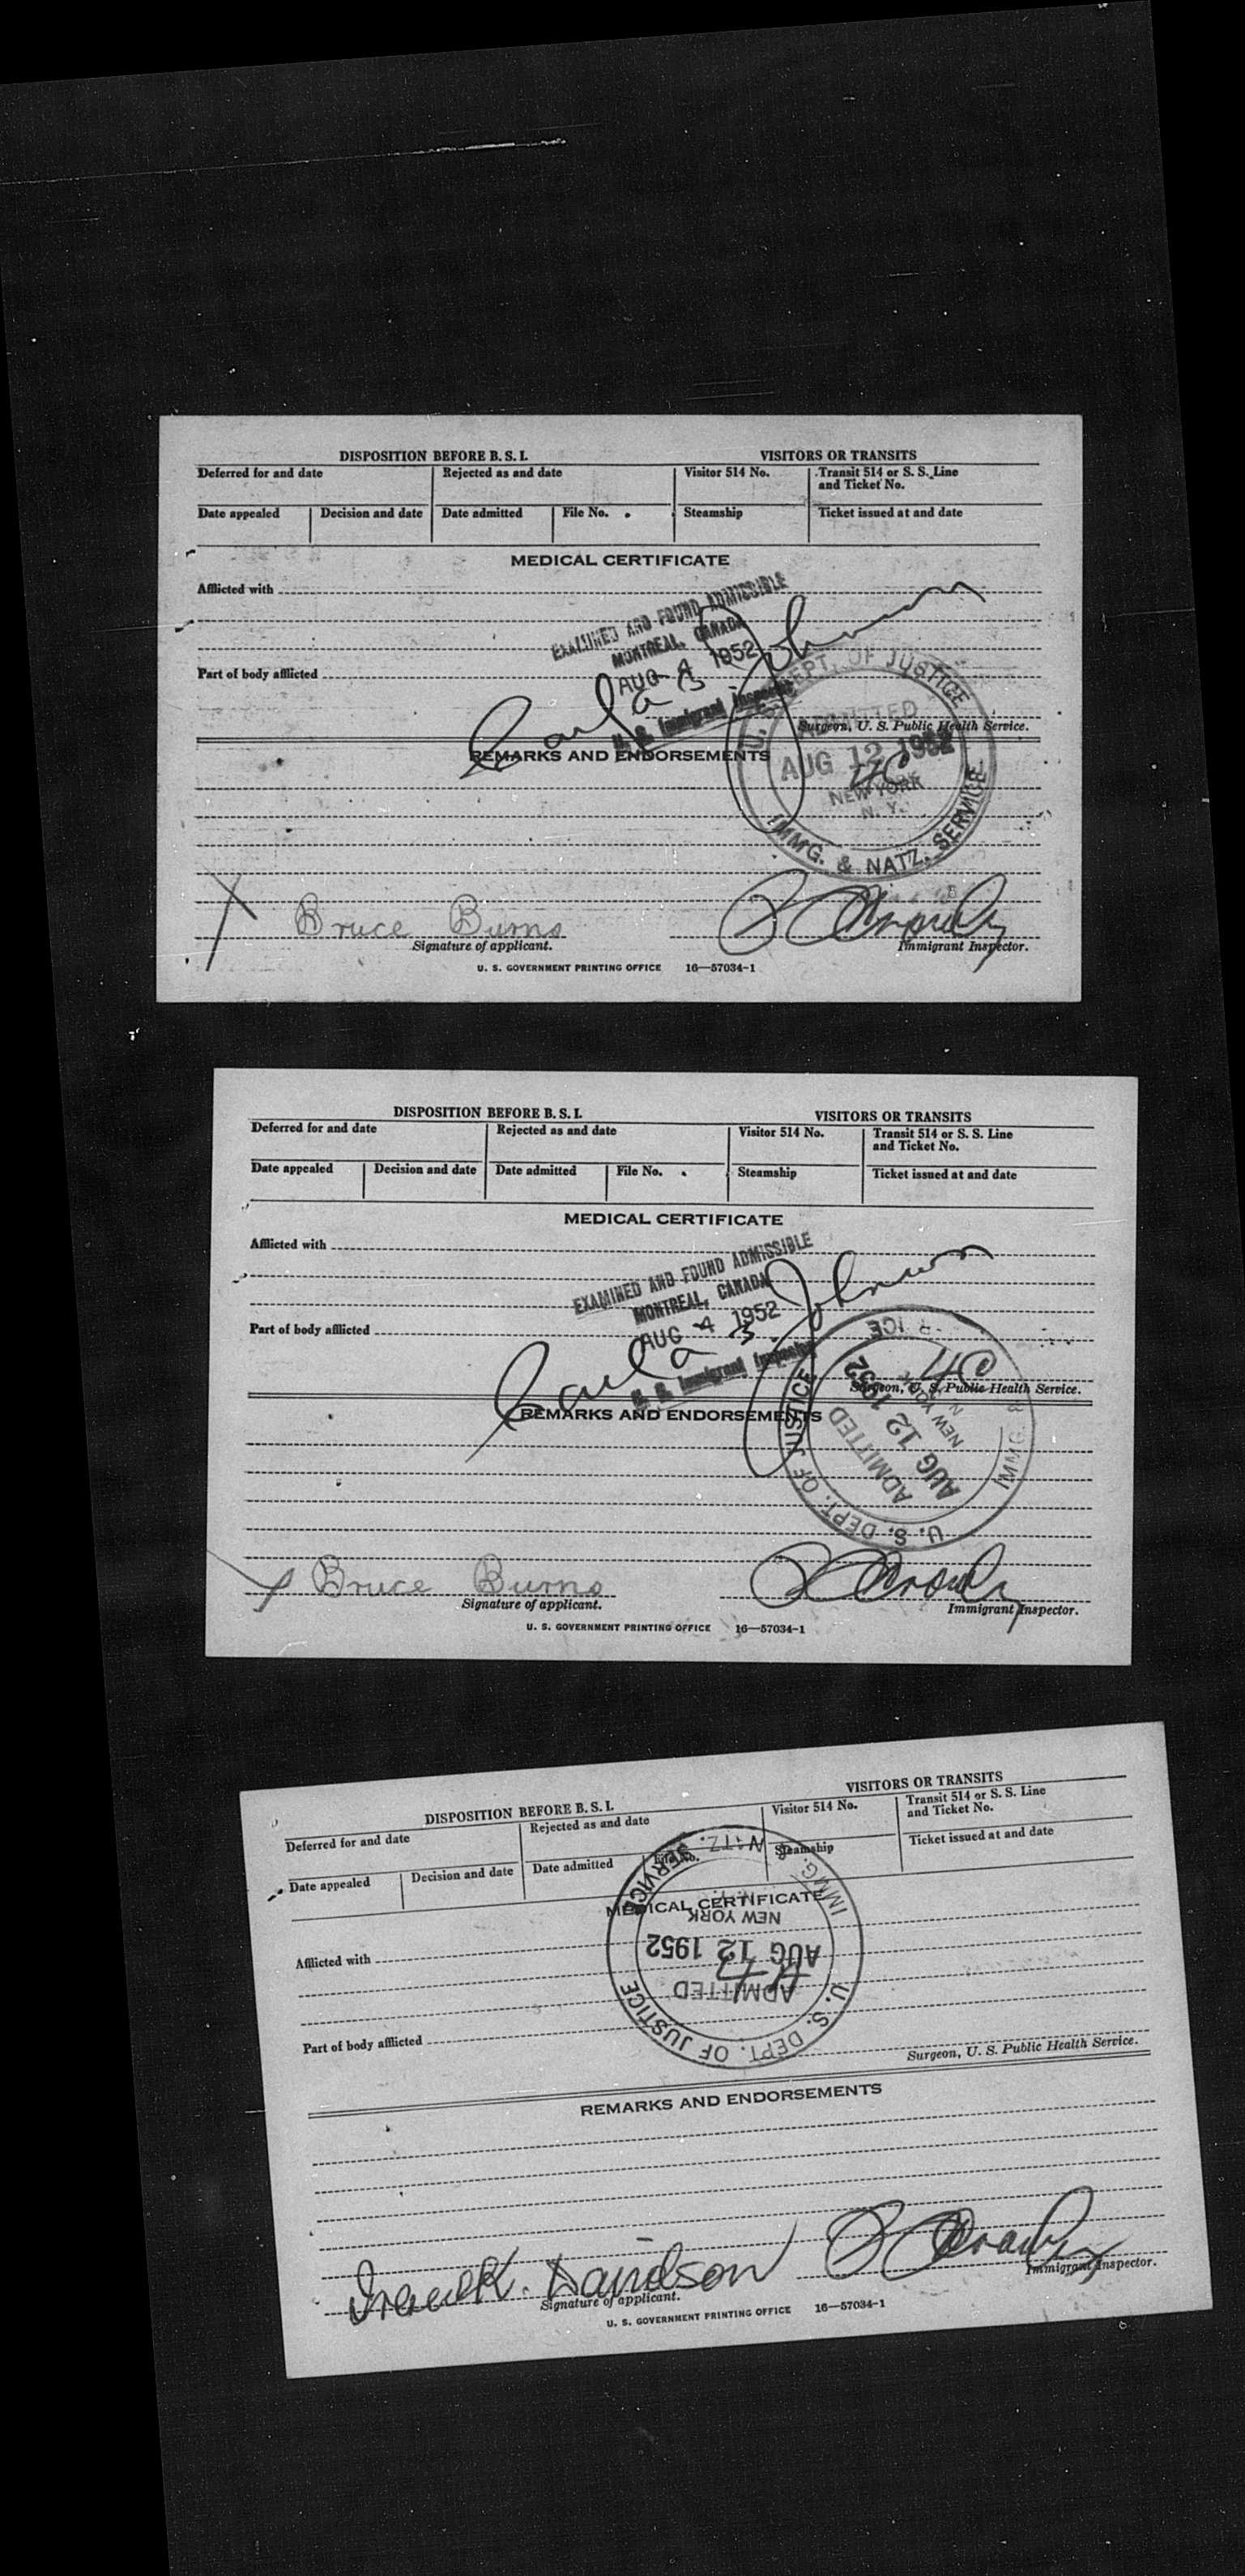 DISPOSITION BEFORE B. S. I. VISITORS OR TRANSITS
Deferred for and date Rejected as and date Visitor 514 No. Transit 514 or S. S. Line
and Ticket No.
Date appealed Decision and date Date admitted File No. Steamship Ticket issued at and date
MEDICAL CERTIFICATE
Afflicted with
EXAMINED AND FOUND ADMISSIBLE
MONTREAL, CANADA
AUG 4 1952
U. S. Immigrant Inspector
Carl a Johnson
Part of body afflicted
Surgeon, U. S. Public Health Service.
U. S. DEPT. OF JUSTICE
ADMITTED
AUG 12 1952
NEW YORK
N. Y.
IMMG. & NATZ. SERVICE
REMARKS AND ENDORSEMENTS
Bruce Burns
Signature of applicant. Immigrant Inspector.
U. S. GOVERNMENT PRINTING OFFICE 16—57034-1
DISPOSITION BEFORE B. S. I. VISITORS OR TRANSITS
Deferred for and date Rejected as and date Visitor 514 No. Transit 514 or S. S. Line
and Ticket No.
Date appealed Decision and date Date admitted File No. Steamship Ticket issued at and date
MEDICAL CERTIFICATE
Afflicted with
EXAMINED AND FOUND ADMISSIBLE
MONTREAL, CANADA
AUG 4 1952
U. S. Immigrant Inspector
Carl a Johnson
Part of body afflicted
Surgeon, U. S. Public Health Service.
U. S. DEPT. OF JUSTICE
ADMITTED
AUG 12 1952
NEW YORK
IMMG.
REMARKS AND ENDORSEMENTS
Bruce Burns
Signature of applicant. Immigrant Inspector.
U. S. GOVERNMENT PRINTING OFFICE 16—57034-1
DISPOSITION BEFORE B. S. I. VISITORS OR TRANSITS
Deferred for and date Rejected as and date Visitor 514 No. Transit 514 or S. S. Line
and Ticket No.
Date appealed Decision and date Date admitted File No. Steamship Ticket issued at and date
MEDICAL CERTIFICATE
Afflicted with
U. S. DEPT. OF JUSTICE
ADMITTED
AUG 12 1952
NEW YORK
IMMG. & NATZ. SERVICE
Part of body afflicted
Surgeon, U. S. Public Health Service.
REMARKS AND ENDORSEMENTS
Irene K. Davidson
Signature of applicant. Immigrant Inspector.
U. S. GOVERNMENT PRINTING OFFICE 16—57034-1